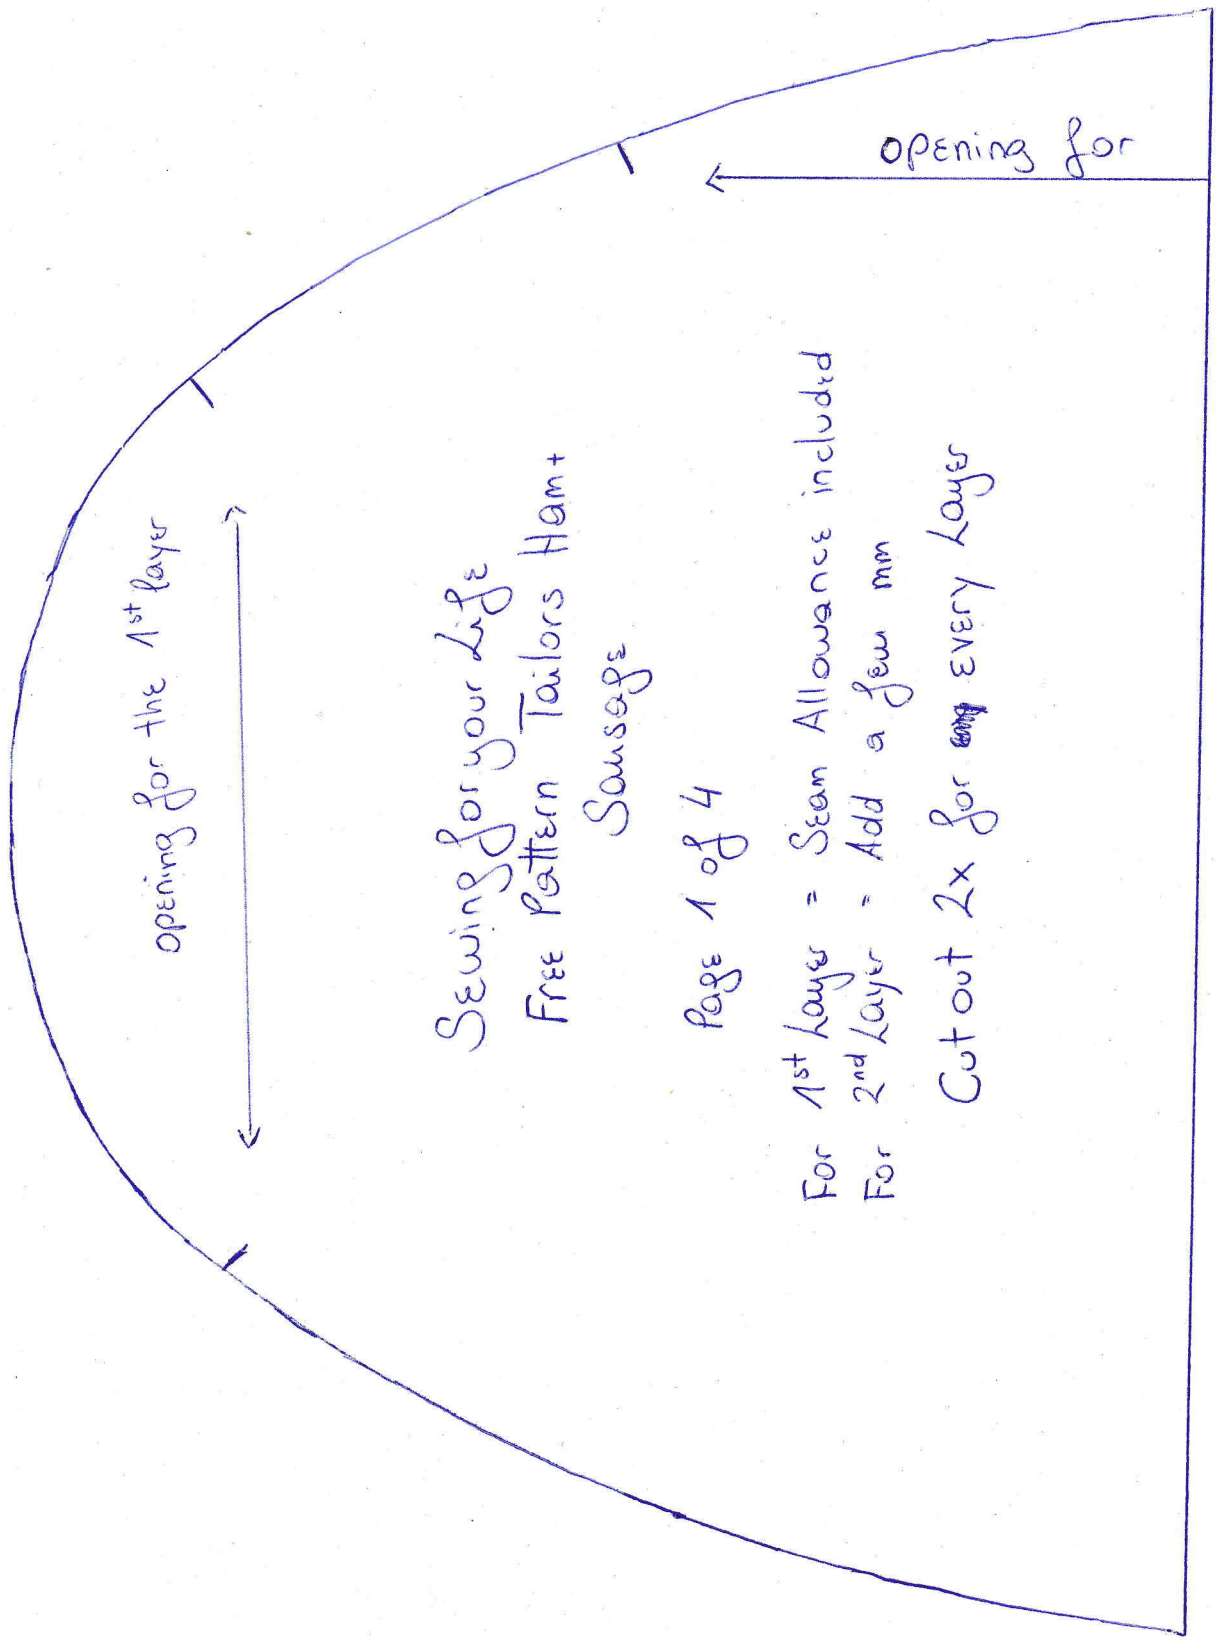 opening for
opening for the 1st layer
Sewing for your Life
Free Pattern Tailors Ham +
Sausage
Page 1 of 4
For 1st Layer = Seam Allowance included
For 2nd Layer = Add a few mm
Cut out 2x for every Layer